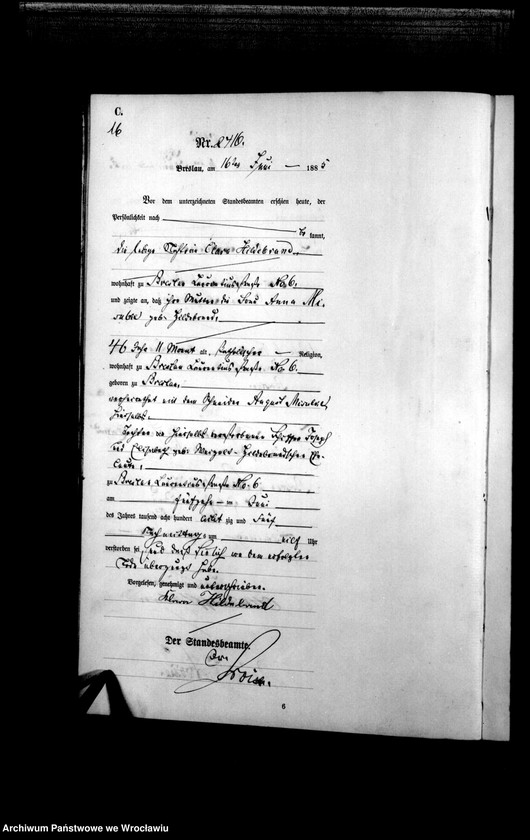 C.
16
Nr. 2716.
Breslau, am 16ten Juni 1885
Vor dem unterzeichneten Standesbeamten erschien heute, der
Persönlichkeit nach
be kannt,
die ledige Clara Hildebrand
wohnhaft zu Breslau Laurentiusstraße No 6.
und zeigte an, daß ihre Mutter die Frau Anna
geb. Hildebrand,
46 Jahr 11 Monat alt, katholischer Religion,
wohnhaft zu Breslau Laurentiusstraße No 6.
geboren zu Breslau,
verheirathet mit dem Schneider August
hierselbst,
Tochter der hierselbst verstorbenen Joseph
und Elisabeth geb. Hildebrandschen Ehe-
leute,
zu Breslau Laurentiusstraße No 6
am fünfzehn ten Juni
des Jahres tausend acht hundert acht zig und fünf
Nachmittags um Uhr
verstorben sei, und daß sie sich von dem erfolgten
Tode überzeugt habe.
Vorgelesen, genehmigt und unterschrieben.
Hildebrandt
Der Standesbeamte.
6
Archiwum Państwowe we Wrocławiu